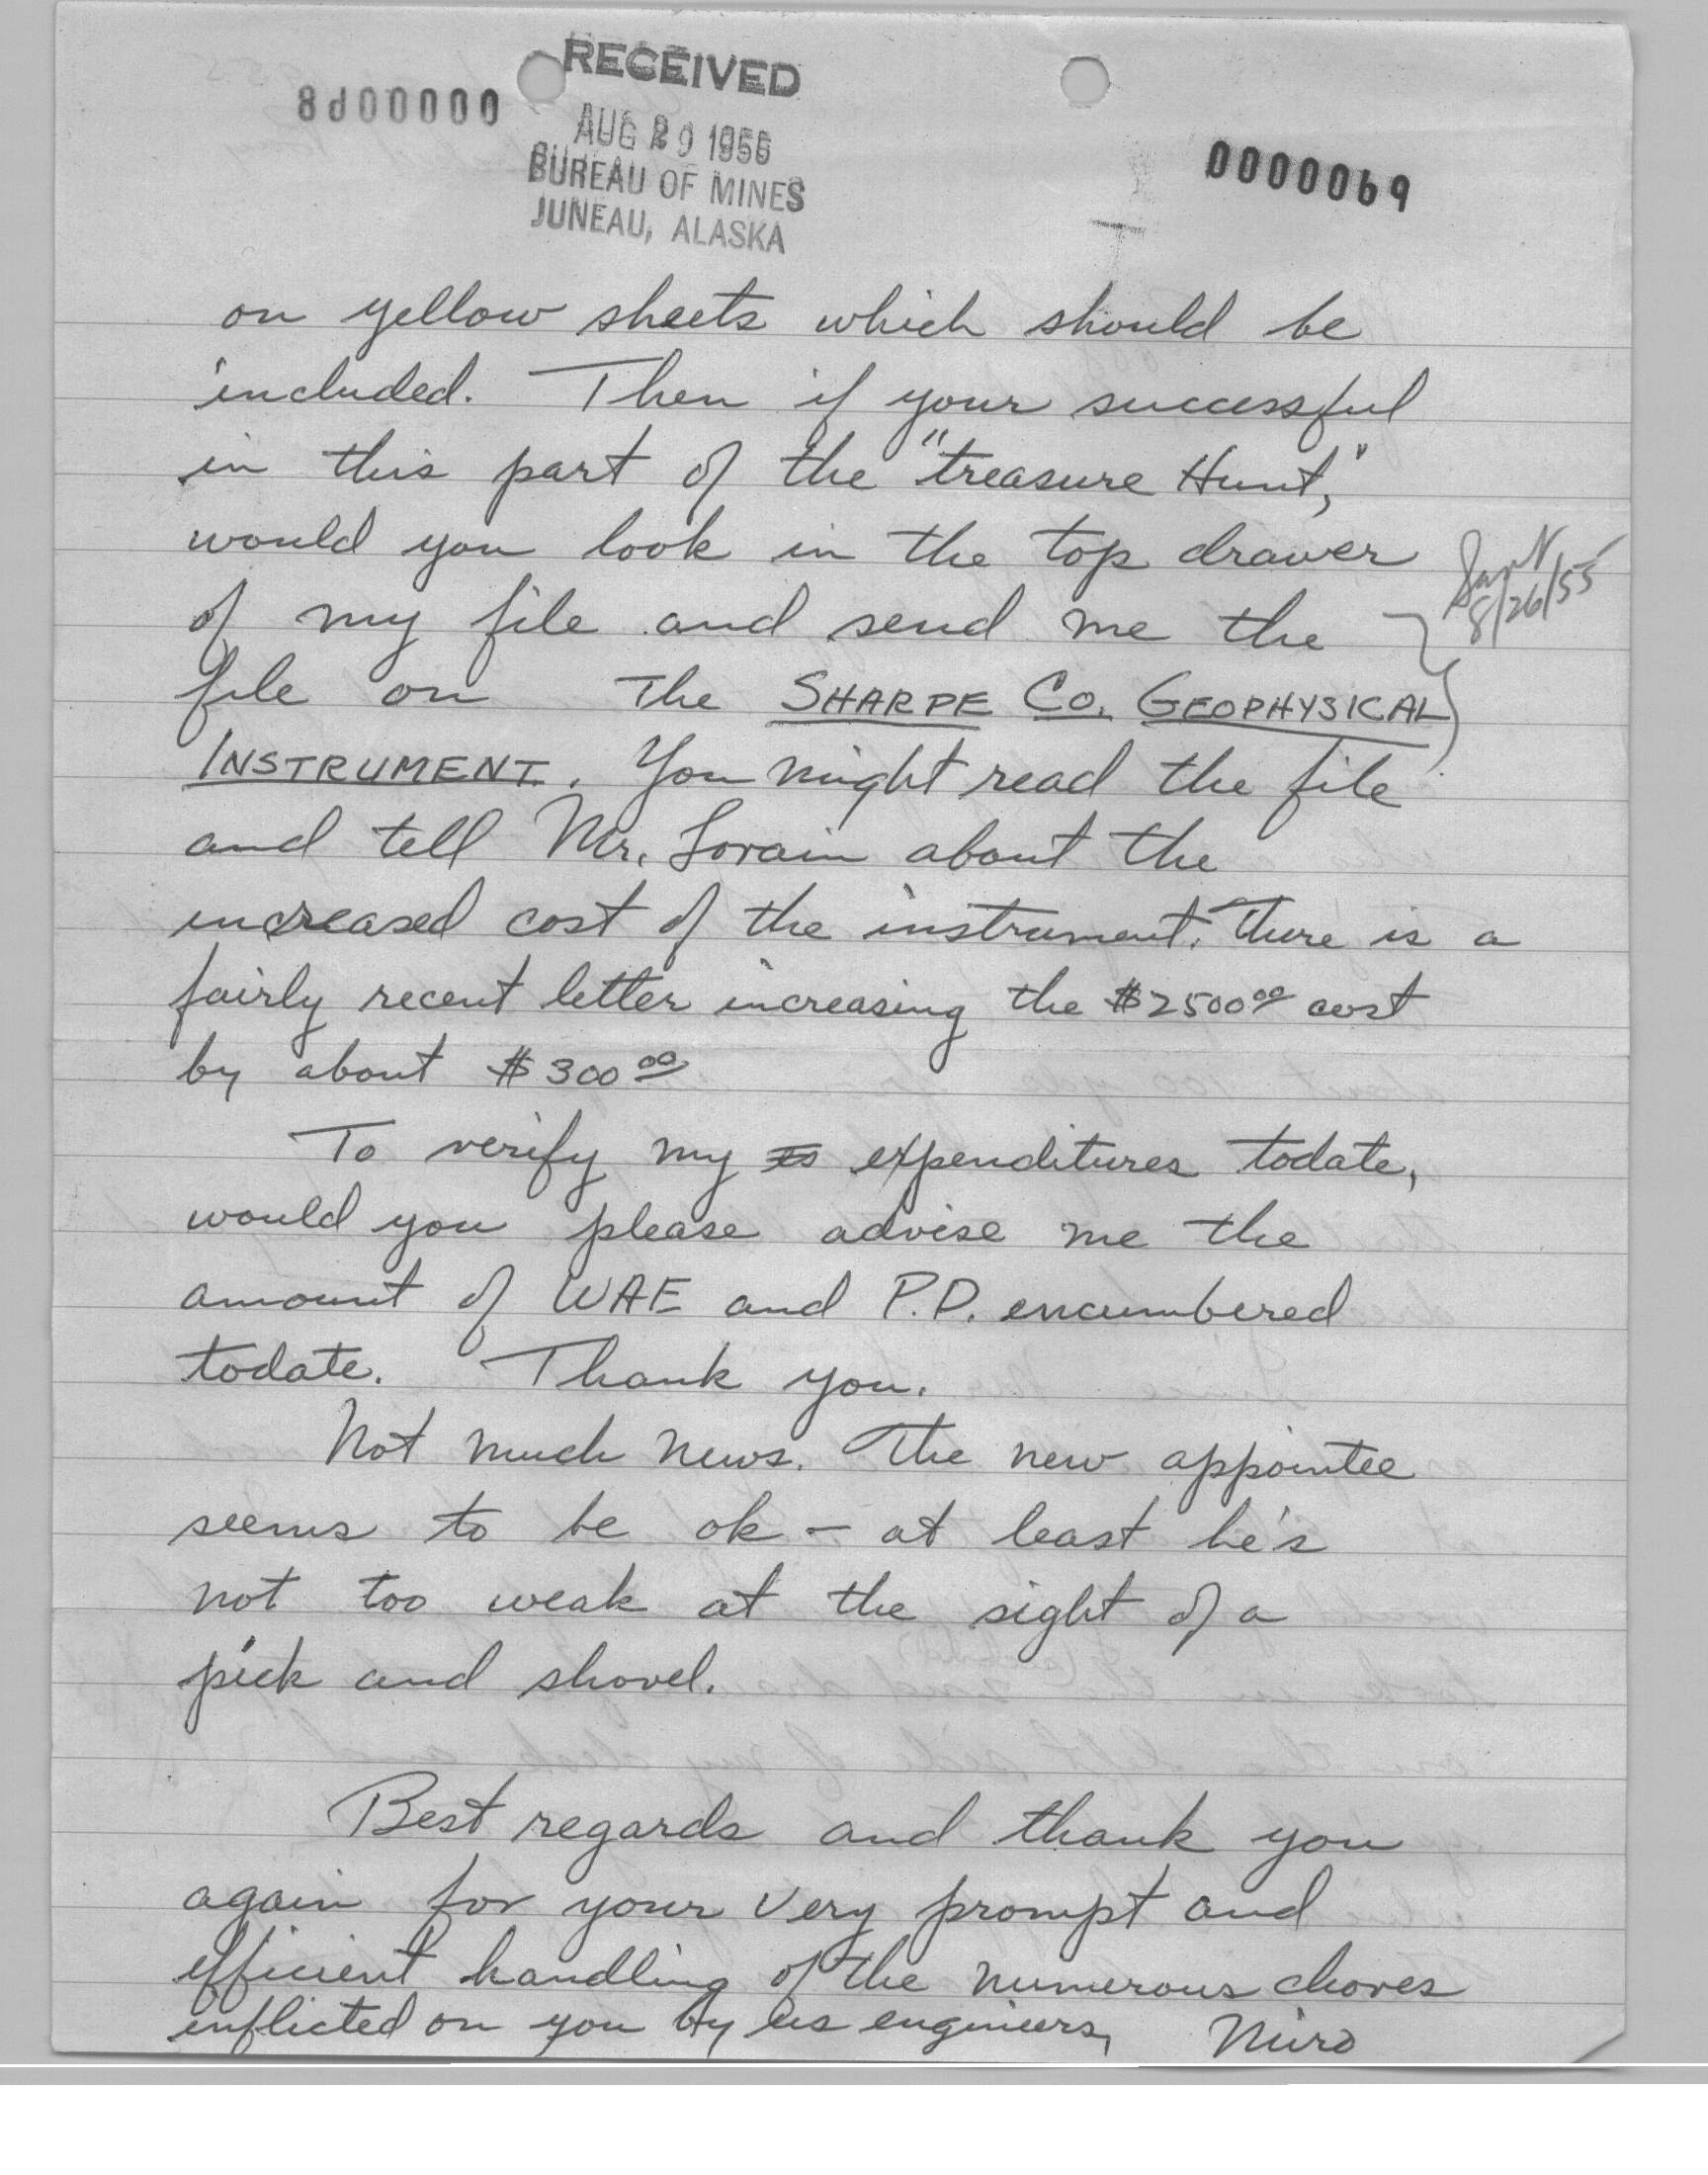 RECEIVED
AUG 29 1955
BUREAU OF MINES
JUNEAU, ALASKA
0000069
on yellow sheets which should be
included. Then if your successful
in this part of the "treasure Hunt,"
would you look in the top drawer
of my file and send me the
Sent
8/26/55
file on The SHARPE CO. GEOPHYSICAL
INSTRUMENT. You might read the file
and tell Mr. Lorain about the
increased cost of the instrument. There is a
fairly recent letter increasing the $2500.00 cost
by about $300.00
To verify my expenditures todate,
would you please advise me the
amount of WAE and P.D. encumbered
todate. Thank you.
Not much news. The new appointee
seems to be ok - at least he's
not too weak at the sight of a
pick and shovel.
Best regards and thank you
again for your very prompt and
efficient handling of the numerous chores
inflicted on you by us engineers,
Miro